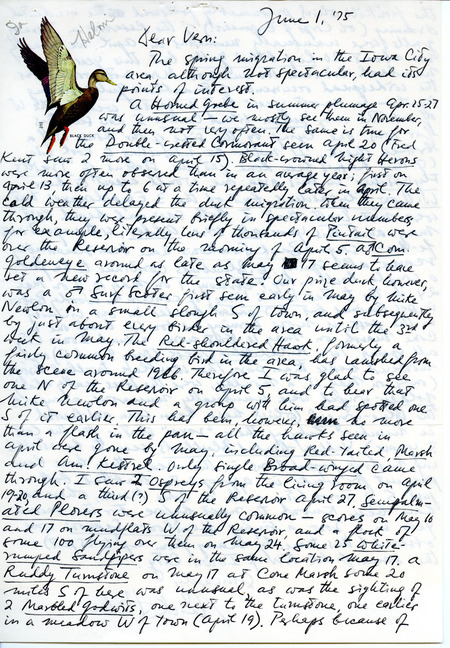 June 1, '75
Dear Vern:
The spring migration in the Iowa City
area, although not spectacular, had its
points of interest.
A Horned Grebe in summer plumage Apr. 25-27
was unusual — we mostly see them in November,
and then not very often. The same is true for
BLACK DUCK
the Double-crested Cormorant seen April 20 (Fred
Kent saw 2 more on April 15). Black-crowned Night Herons
were more often observed than in an average year; first on
April 13, then up to 6 at a time repeatedly late in April. The
cold weather delayed the duck migration. When they came
through, they were present briefly in spectacular numbers
for example, literally tens of thousands of Pintail were
over the Reservoir on the morning of April 5. A Com.
Goldeneye around as late as May 17 seems to have
set a new record for the state. Our prize duck, however,
was a ♂ Surf Scoter first seen early in May by Mike
Newlon in a small slough S of town, and subsequently
by just about every birder in the area until the 3rd
week in May. The Red-shouldered Hawk, formerly a
fairly common breeding bird in the area, has vanished from
the scene around 1966. Therefore I was glad to see
one N of the Reservoir on April 5, and to hear that
Mike Newlon and a group with him had spotted one
S of it earlier. This has been, however, no more
than a flash in the pan — all the hawks seen in
April were gone by May, including Red-tailed, Marsh
and Am. Kestrel. Only single Broad-winged came
through. I saw 2 Ospreys from the living room on April
19-20, and a third (?) S of the Reservoir April 27. Semipalm-
ated Plovers were unusually common — scores on May 10
and 17 on mudflats W of the Reservoir, and a flock of
some 100 flying over them on May 24. Some 25 White-
rumped Sandpipers were in the same location May 17. A
Ruddy Turnstone on May 17 at Cone Marsh some 20
miles S of here was unusual, as was the sighting of
2 Marbled Godwits, one next to the turnstone, one earlier
in a meadow W of Town (April 19). Perhaps because of